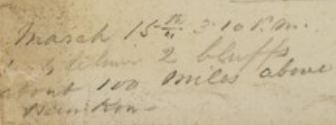 March 15th 3.10 P.M.
2 bluffs
about 100 miles above